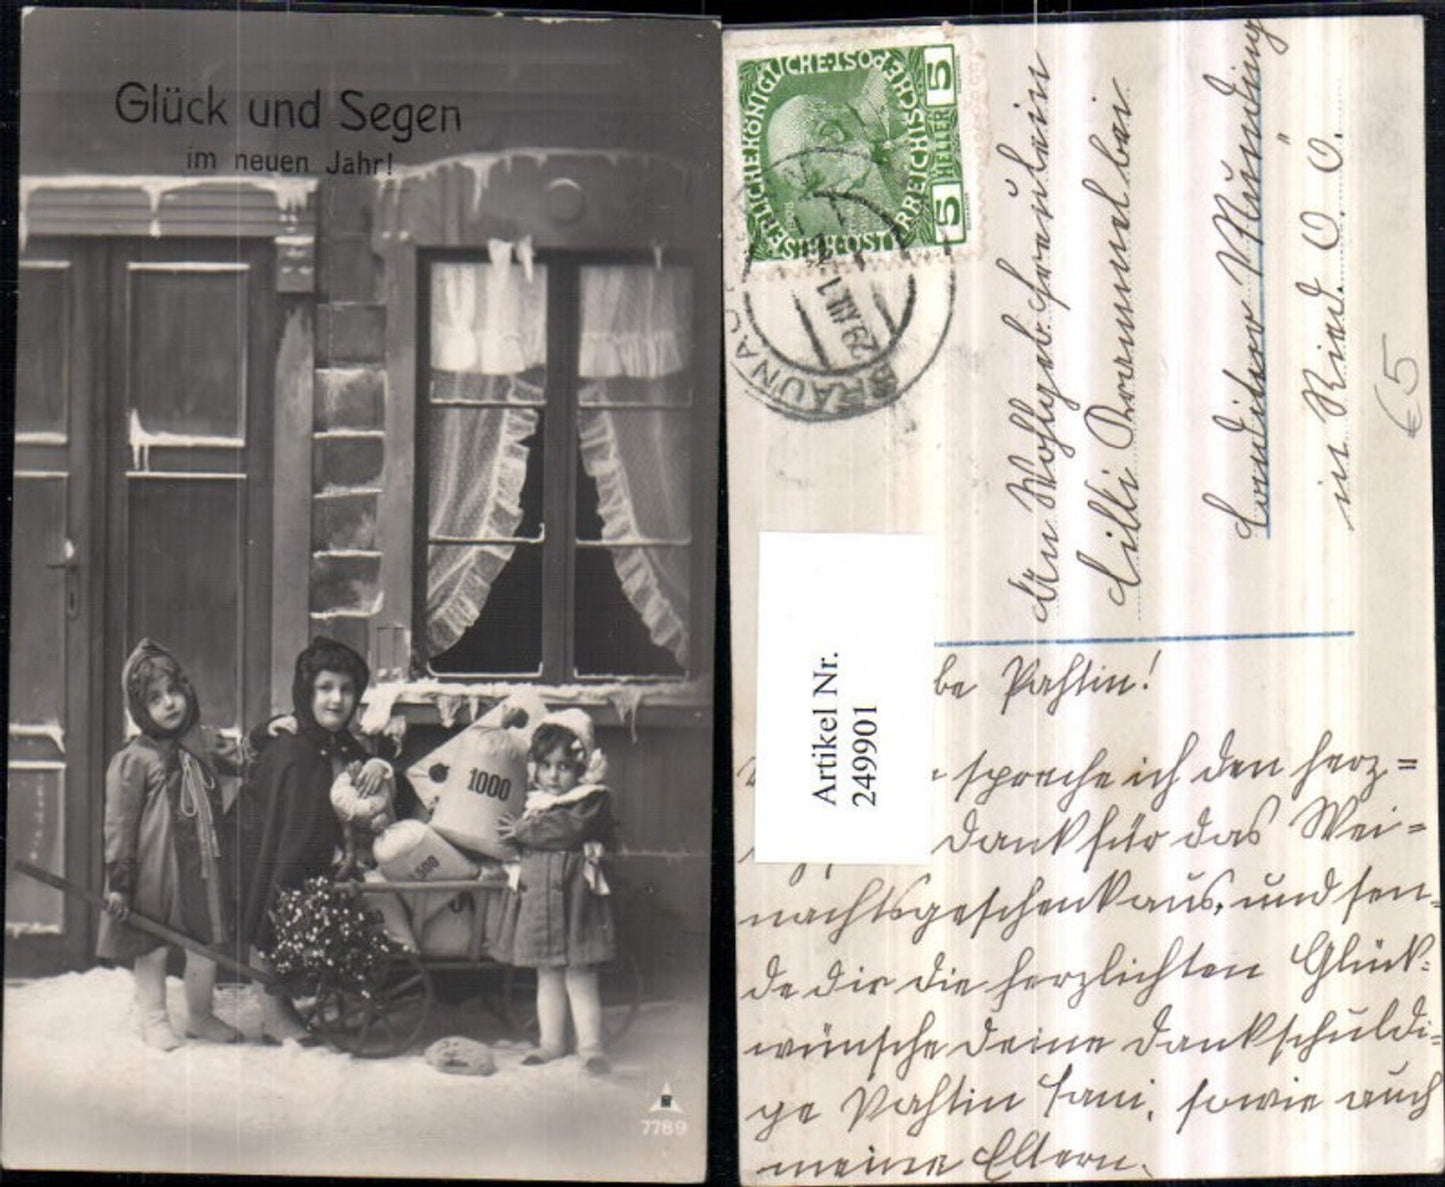 Glück und Segen
im neuen Jahr!
1000
7789
KAISERLICHE KÖNIGLICHE ÖSTERREICHISCHE POST
5 HELLER 5
BRAUNAU
29 XII 1
An Wohlgeb. Fräulein
Cilli Brommel bei
Conditor Münding
in Ried. O. Ö.
€5
Artikel Nr.
249901
be Pahtin!
spreche ich den herz=
Dank für das Wei=
nachtsgeschenk aus, und sen=
de dir die herzlichten Glück=
wünsche deine dankschuldi=
ge Pahtin Fani, sowie auch
meine Eltern.